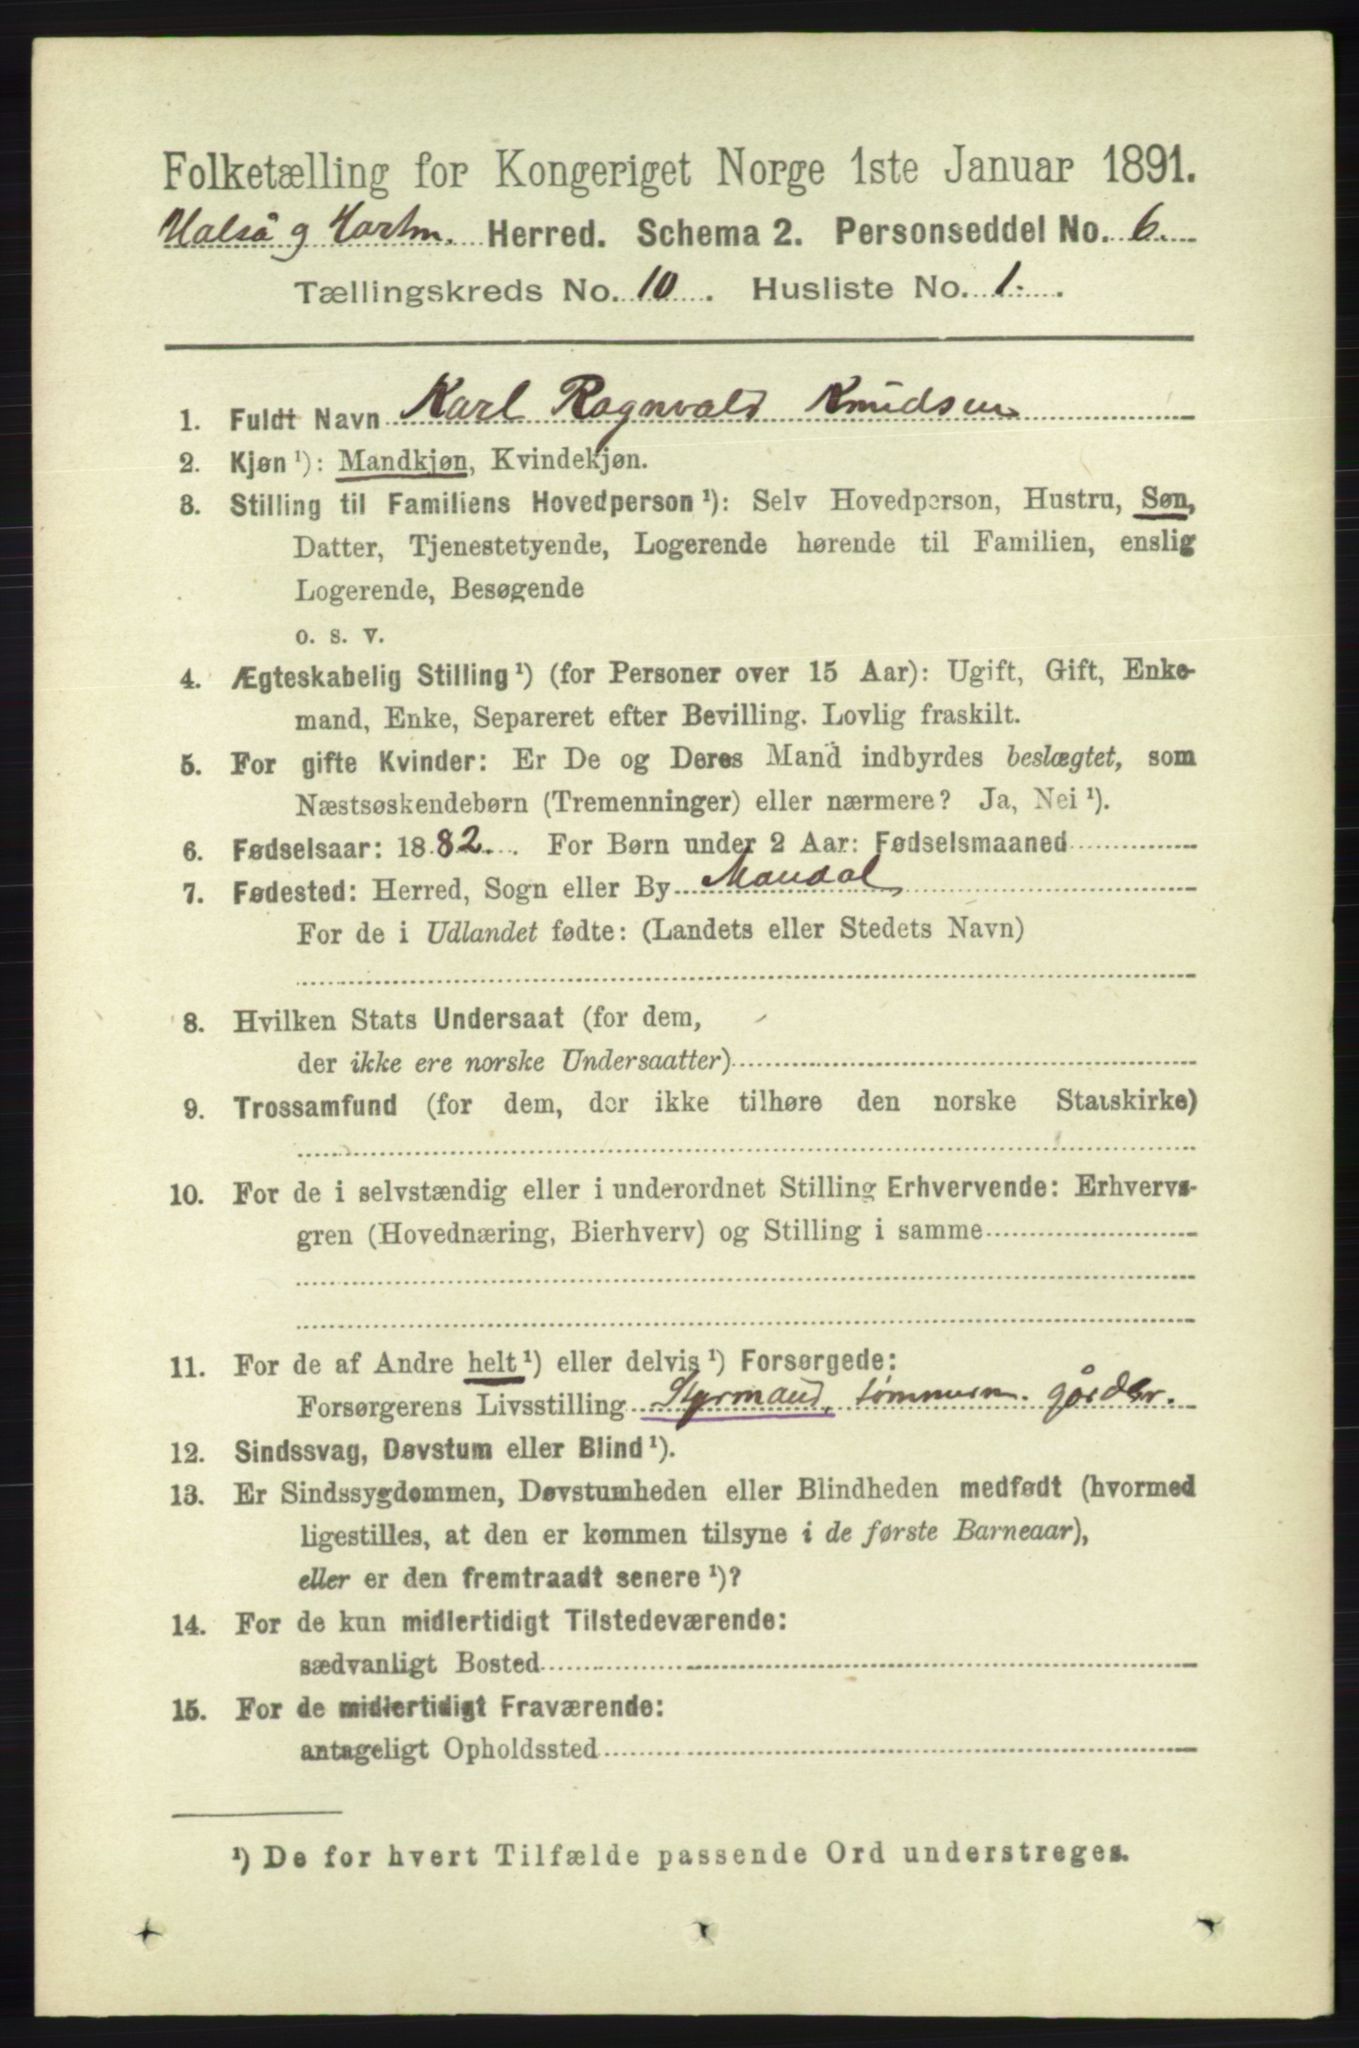 Folketælling for Kongeriget Norge 1ste Januar 1891.
Halså g Hartm. Herred. Schema 2. Personseddel No. 6.
Tællingskreds No. 10. Husliste No. 1.
1. Fuldt Navn Karl Ragnvald Knudsen
2. Kjøn ¹): Mandkjøn, Kvindekjøn.
3. Stilling til Familiens Hovedperson ¹): Selv Hovedperson, Hustru, Søn,
Datter, Tjenestetyende, Logerende hørende til Familien, enslig
Logerende, Besøgende
o. s. v.
4. Ægteskabelig Stilling ¹) (for Personer over 15 Aar): Ugift, Gift, Enke-
mand, Enke, Separeret efter Bevilling. Lovlig fraskilt.
5. For gifte Kvinder: Er De og Deres Mand indbyrdes beslægtet, som
Næstsøskendebørn (Tremenninger) eller nærmere? Ja, Nei ¹).
6. Fødselsaar: 1882. For Børn under 2 Aar: Fødselsmaaned
7. Fødested: Herred, Sogn eller By Mandal
For de i Udlandet fødte: (Landets eller Stedets Navn)
8. Hvilken Stats Undersaat (for dem,
der ikke ere norske Undersaatter)
9. Trossamfund (for dem, der ikke tilhøre den norske Statskirke)
10. For de i selvstændig eller i underordnet Stilling Erhvervende: Erhvervs-
gren (Hovednæring, Bierhverv) og Stilling i samme
11. For de af Andre helt ¹) eller delvis ¹) Forsørgede:
Forsørgerens Livsstilling Styrmand, tømmerm. gårder.
12. Sindssvag, Døvstum eller Blind ¹).
13. Er Sindssygdommen, Døvstumheden eller Blindheden medfødt (hvormed
ligestilles, at den er kommen tilsyne i de første Barneaar),
eller er den fremtraadt senere ¹)?
14. For de kun midlertidigt Tilstedeværende:
sædvanligt Bosted
15. For de midlertidigt Fraværende:
antageligt Opholdssted
¹) De for hvert Tilfælde passende Ord understreges.